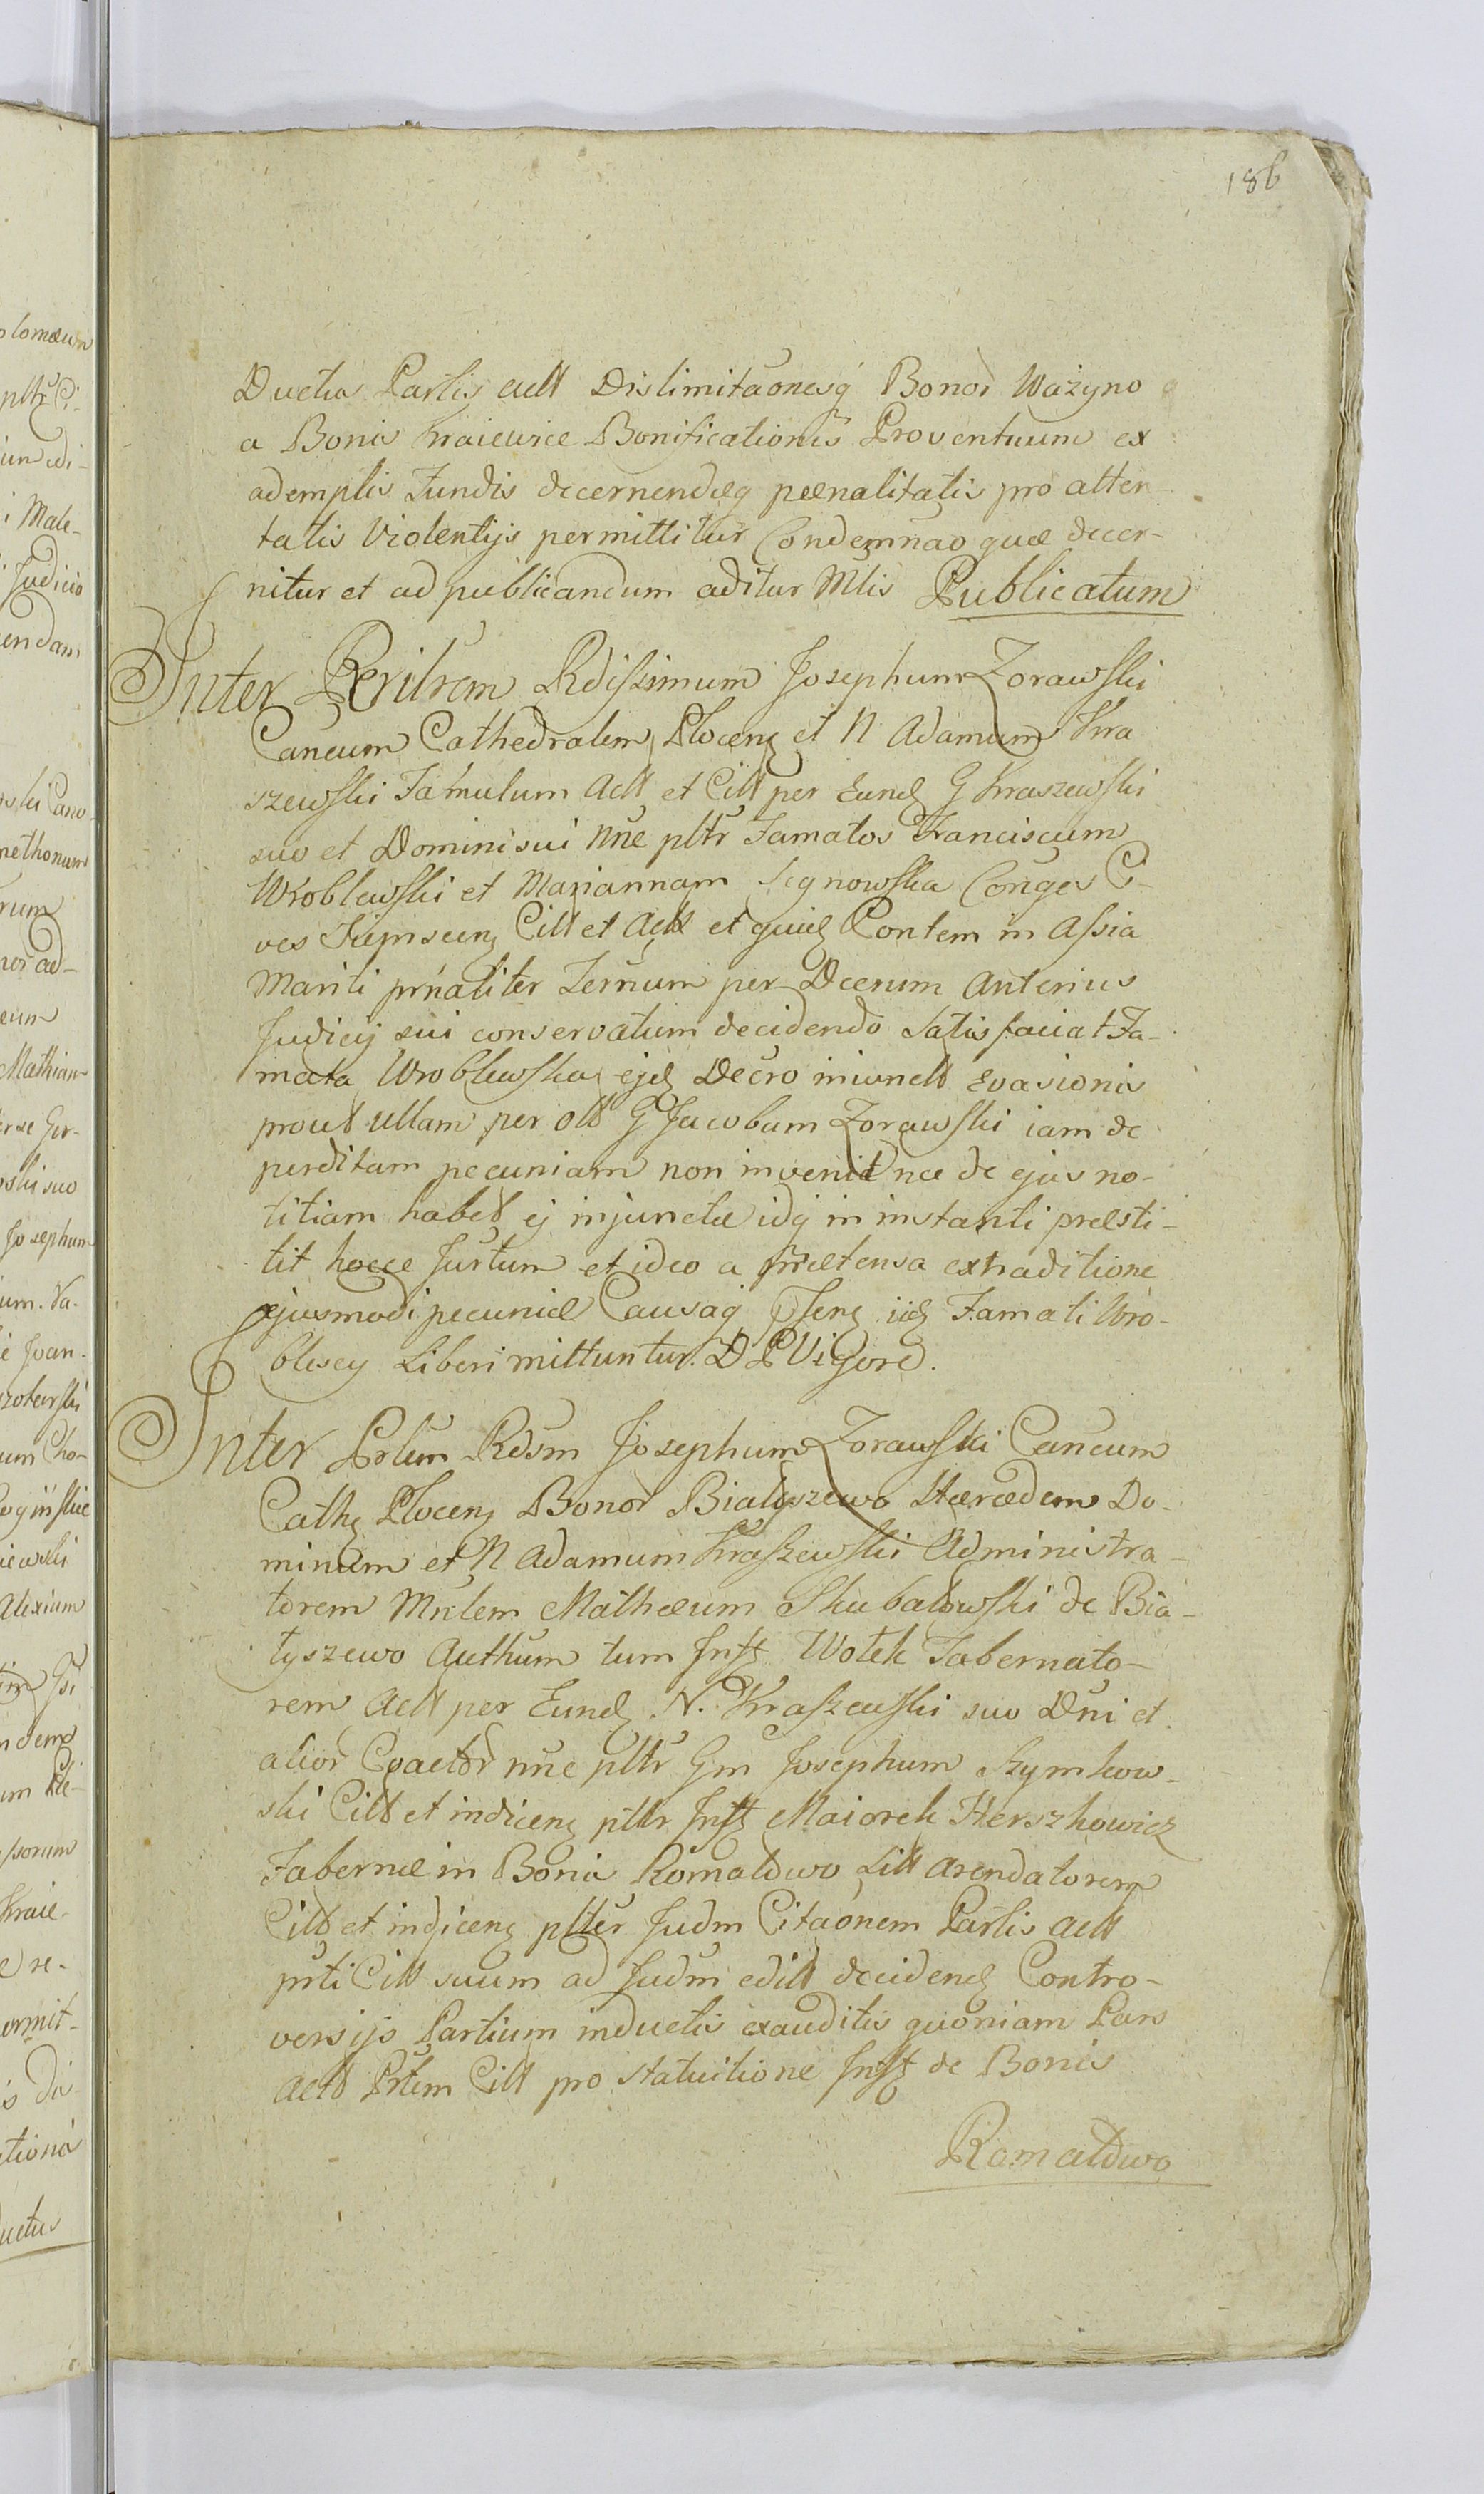 186
Ductu Partis actt Dislimitãonesq̃ Bonor Ważyno
a Bonis Kraiewice Bonificationis Proventuum ex
ademptis Fundis decernendæq pœnalitatis pro atten-
tatis Violentijs permittitur Condemnão quæ decer-
nitur et ad publicandum aditur Mlis Publicatum
Inter Rdissimum Josephum Zorawski
Cancum Cathedralem Plocen et N Adamum Kra
szewski Famulum Act et Citt per Eund G Kraszewski
suo et Domini sui nñe pltr Famatos Franciscum
Wroblewski et Mariannam Conges Ci-
ves Citt et Actt et quid Pontem in Assia
Mariti prñaliter Ternum per Dcenum Anterius
Judicij sui conservatum decidendo Satisfaciat Fa-
mata Wroblewska ejd Decro iniunctt Evasionis
prout ullam per olt G Jacobum Zorawski iam de
perditam pecuniam non invenit nec de ejus no-
titiam habet ej injunctæ idq in instanti præsti-
tit hocce Jurtum et ideo a prætensa extraditione
ejusmodi pecuniæ Causaq iid Famati Wro-
blescy Liberi mittuntur. D P Vigore.
Inter Prlem Rdsm Josephum Zorawski Cancum
Cath Plocen Bonor Białyszewo Hæredem Do-
minum et N Adamum Kraszewski Administra-
torem Mathæum Skubałowski de Bia-
łyszewo Aucthum tum Inf Wołek Tabernato-
rem Actt per Eund N. Kraszewski suo Dñi et
alior Coactor nñe pltr Gm Josephum Szymkow-
ski Citt et indicen pltr Inf Maiorek Herszkowicz
Tabernæ in Bonis Romatowo Sitt arendatorem
Citt et indicen plter Judm Citaonem Partis actt
prti Citt suum ad Judm editt decidend Contro-
versijs Partium inductis exauditis quoniam Pars
actt Prtem Citt pro statuitione Inf de Bonis
Romatowo